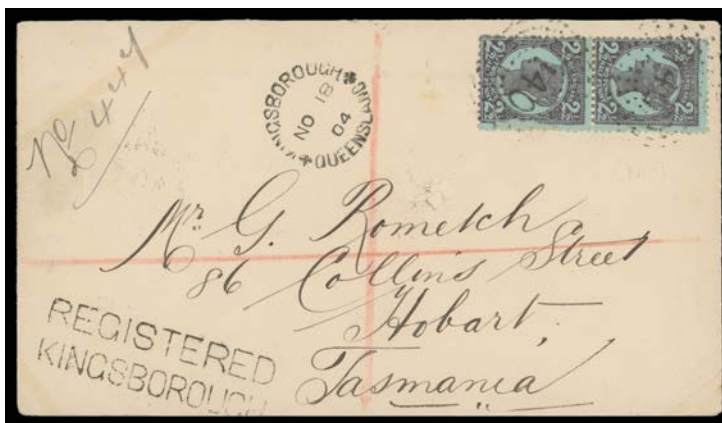 No 447
KINGSBOROUGH
NO 18
04
QUEENSLAND
2½ 2½
2½ 2½
Mr. G. Rometch
86 Collins Street
Hobart,
Tasmania
REGISTERED
KINGSBOROUGH